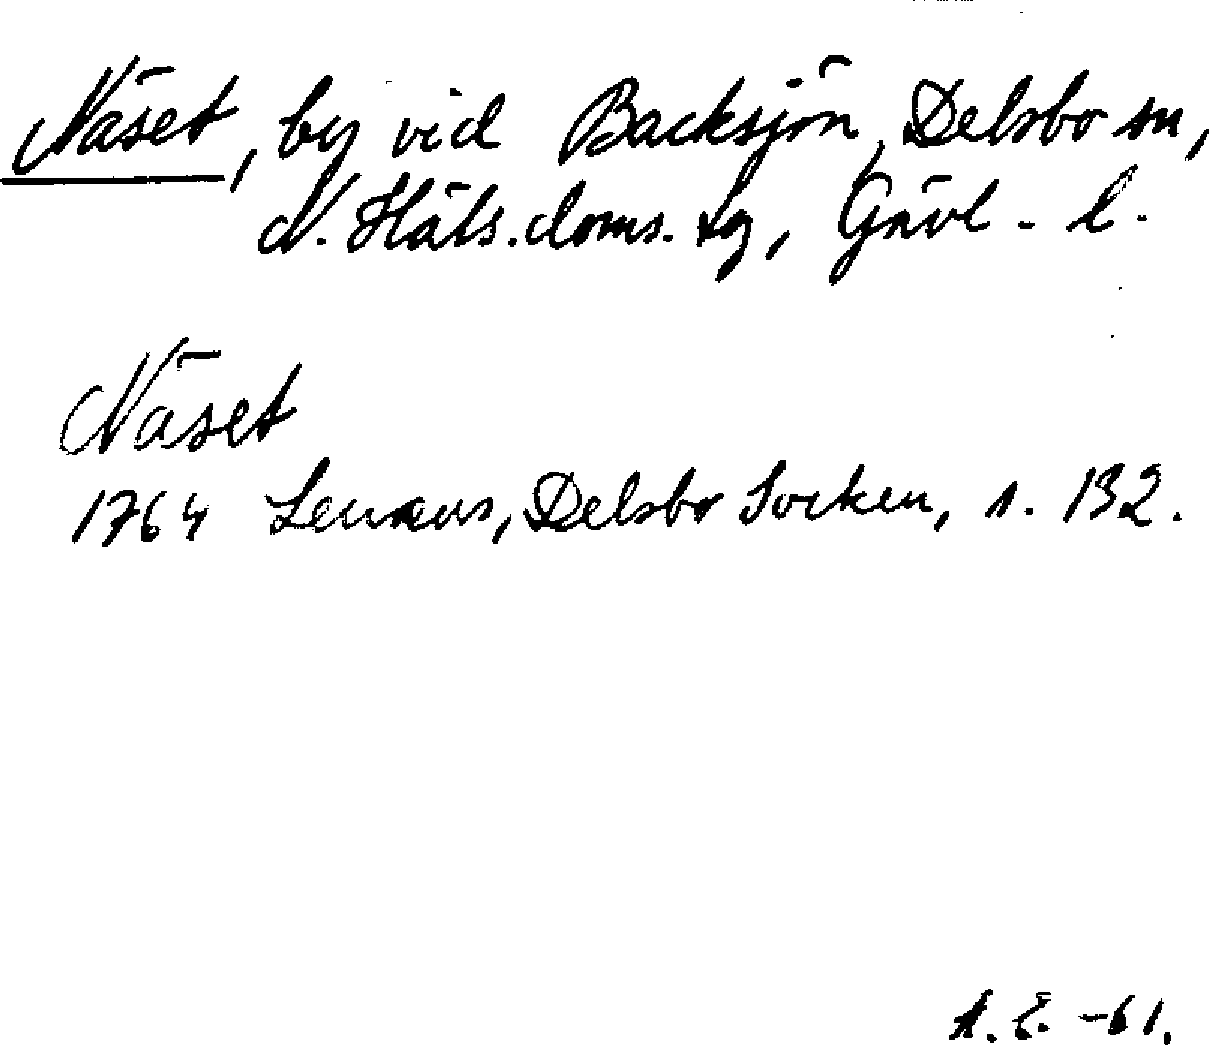 Näset, by vid Backsjön, Delsbo sn,
N. Häls. doms. tg, Gävl - l.
Näset
1764 Lenæus, Delsbo Socken, s. 132.
A. E. -61.